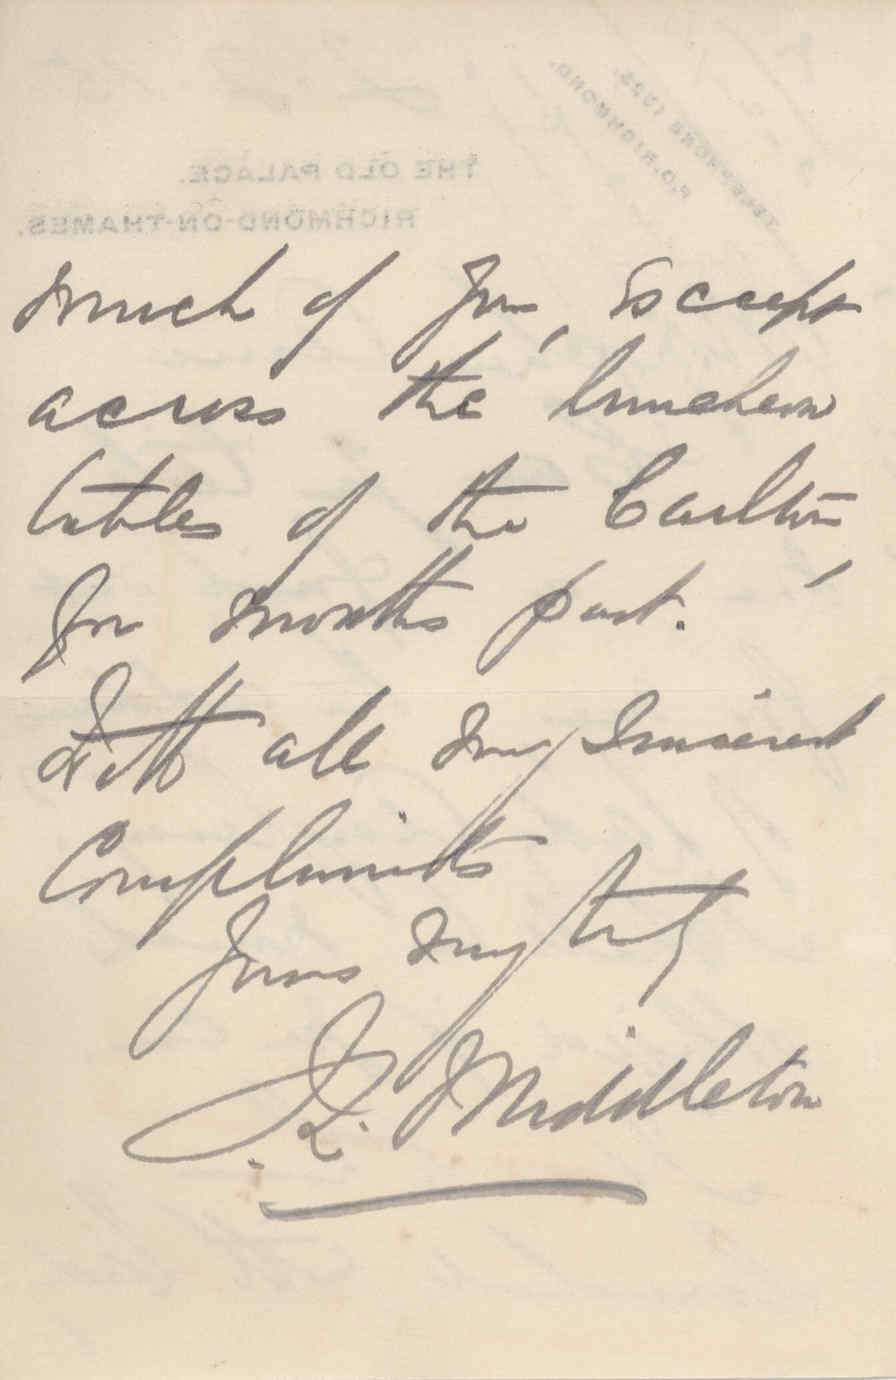 THE OLD PALACE.
RICHMOND-ON-THAMES.
TELEPHONE
P.O. RICHMOND.
much of you, except
across the luncheon
tables of the Carlton,
for months past.
With all my sincerest
Compliments
Yours very truly
J. L. Middleton